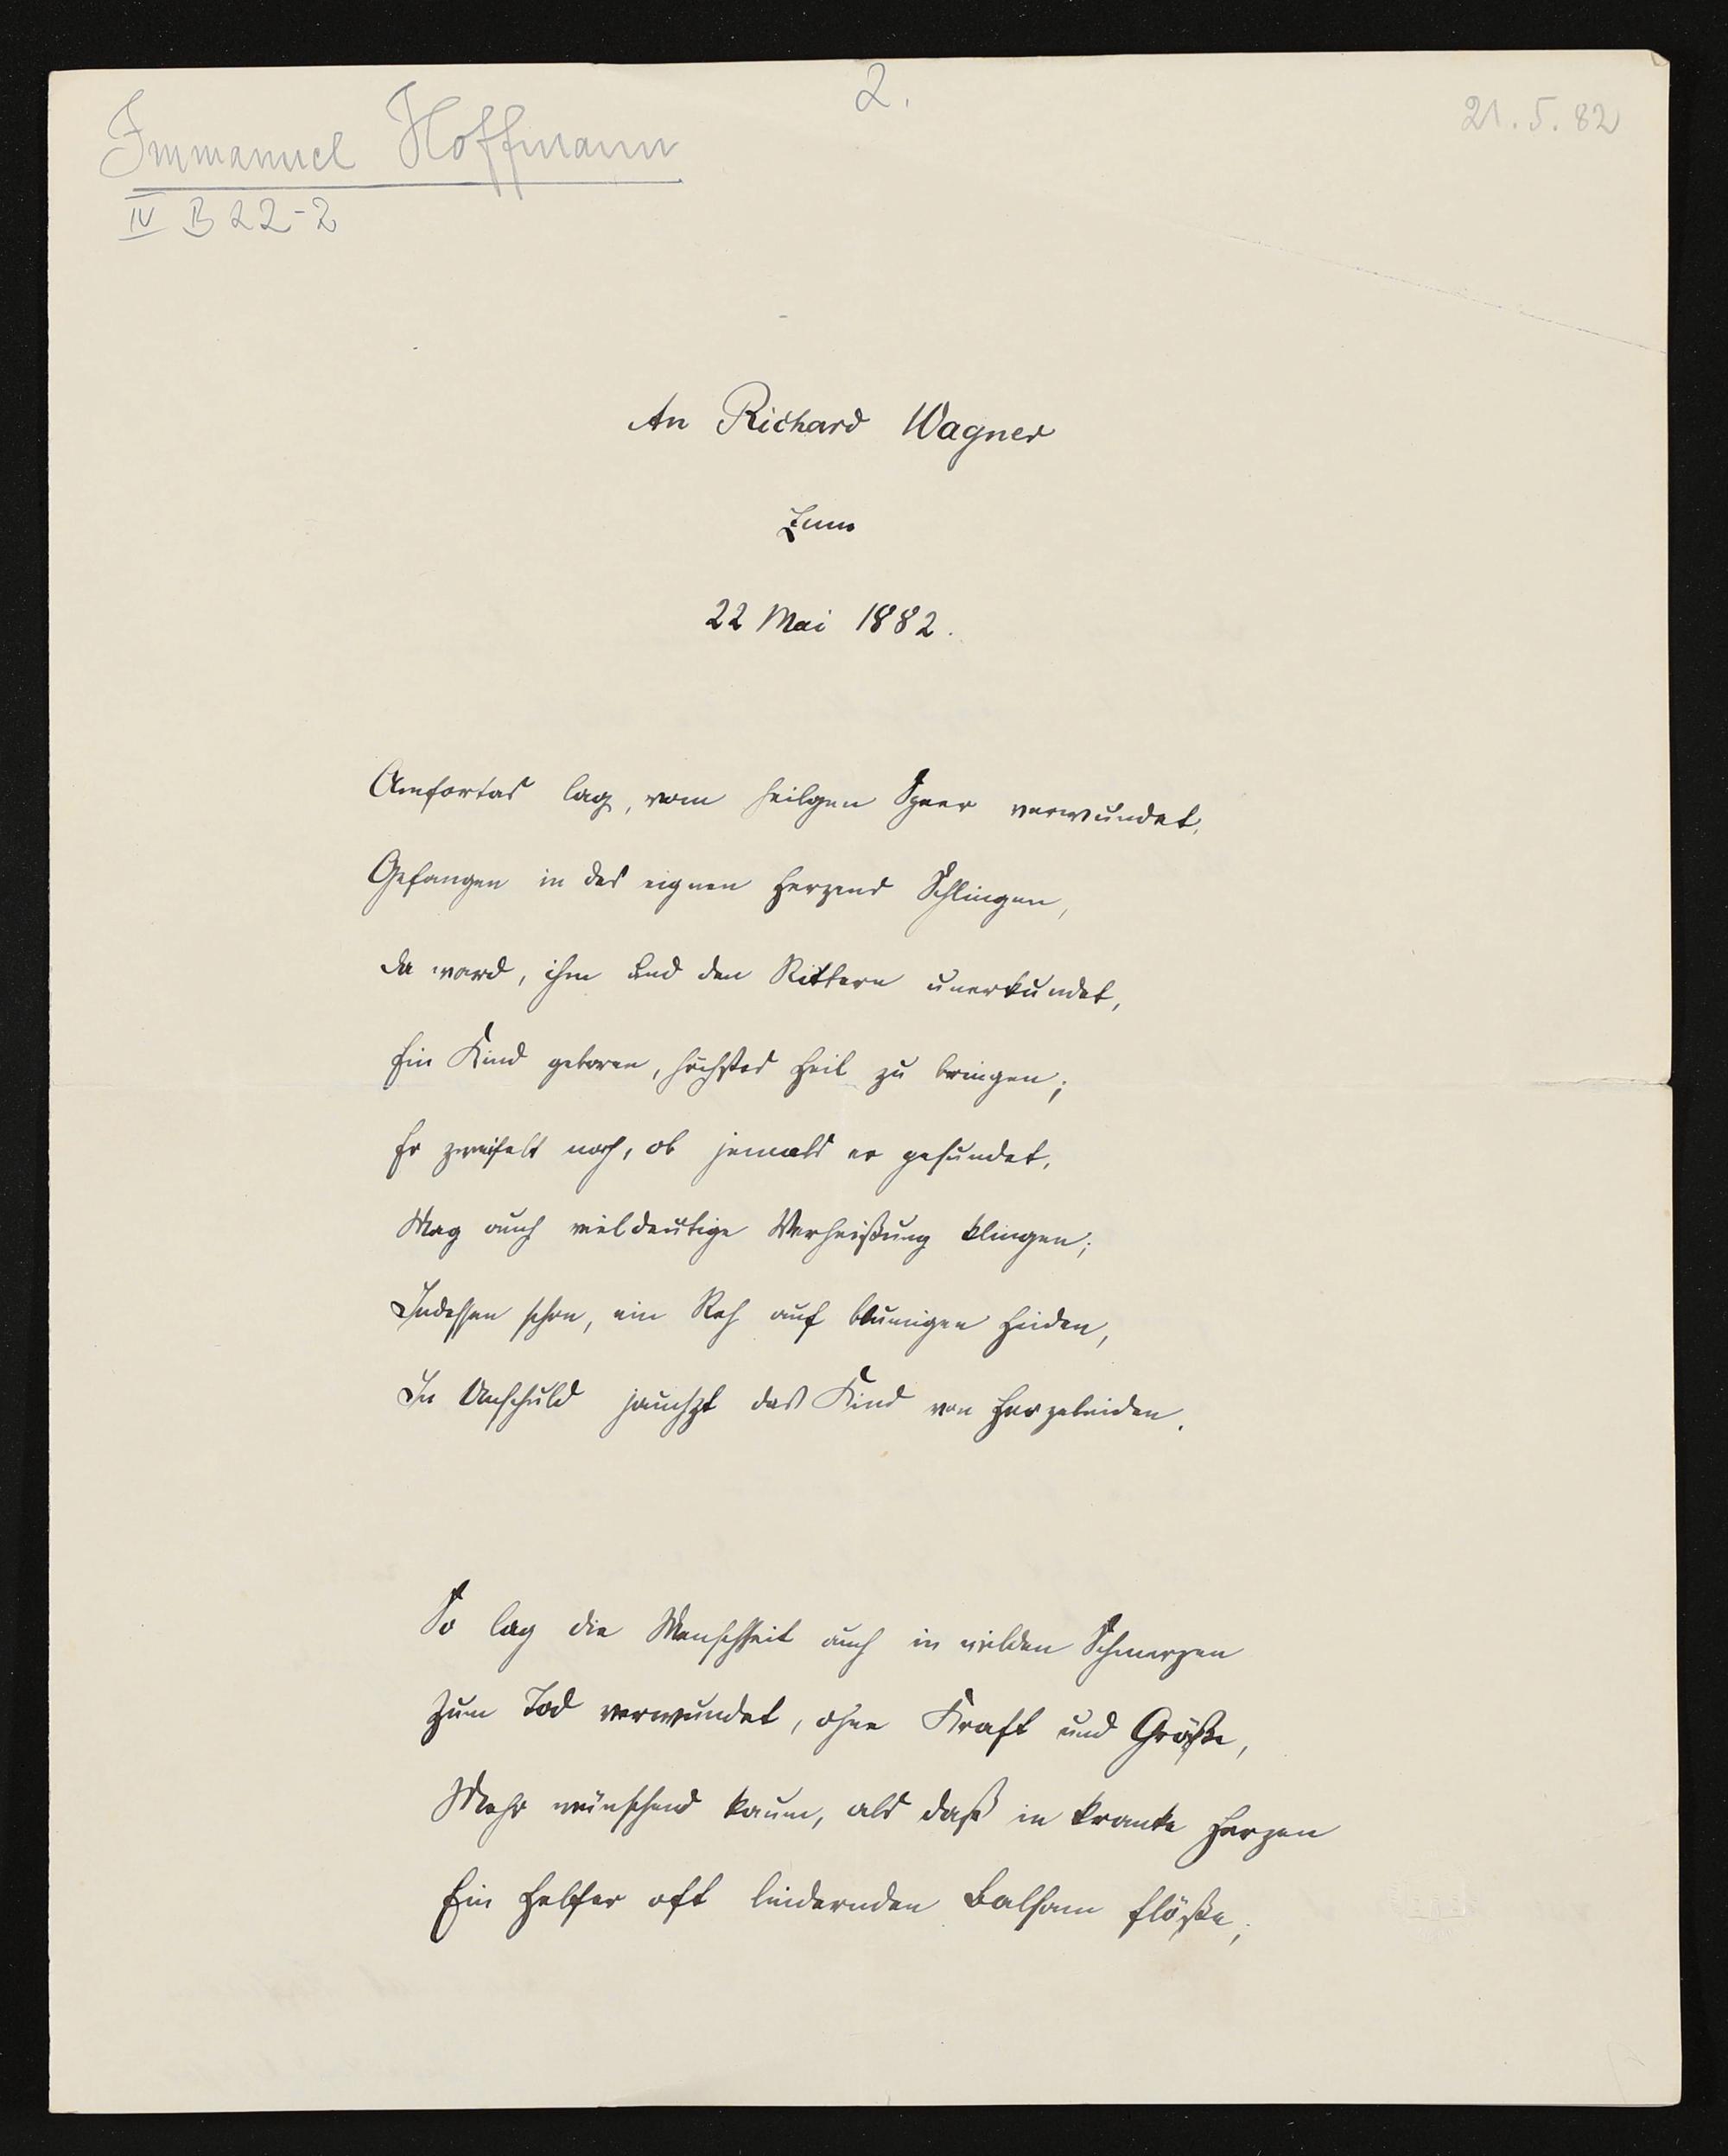 Immanuel Hoffmann
IV B 22-2
2.
21.5.82
An Richard Wagner
Zum
22 Mai 1882.
Amfortas lag, vom heilgen Speer verwundet,
Gefangen in des eignen Herzens Schlingen,
Da ward, ihm und den Rittern unerkundet,
Ein Kind geboren, höchstes Heil zu bringen;
Er zweifelt noch, ob jemals er gesundet,
Mag auch vieldeutige Verheißung klingen;
Indessen schon, ein Reh auf blumigen Heiden,
In Unschuld jauchzt das Kind von Herzeleiden.
So lag die Menschheit auch in wilden Schmerzen
Zum Tod verwundet, ohne Kraft und Größe,
Mehr wünschend kaum, als daß in kranke Herzen
Ein Helfer oft lindernden Balsam flöße;